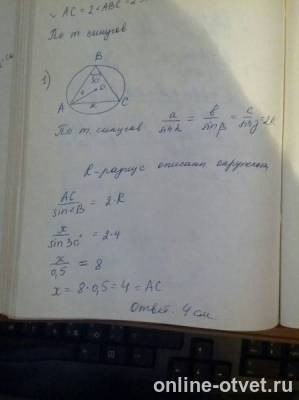 AC = 2
По т. синусов
1)
B
30
4
O
A
x
C
По т. синусов a/sinα = b/sinβ = c/sinγ = 2R
R - радиус описан. окружности
AC/sin∠B = 2·R
x/sin30° = 2·4
x/0,5 = 8
x = 8·0,5 = 4 = AC
Ответ. 4 см
online-otvet.ru